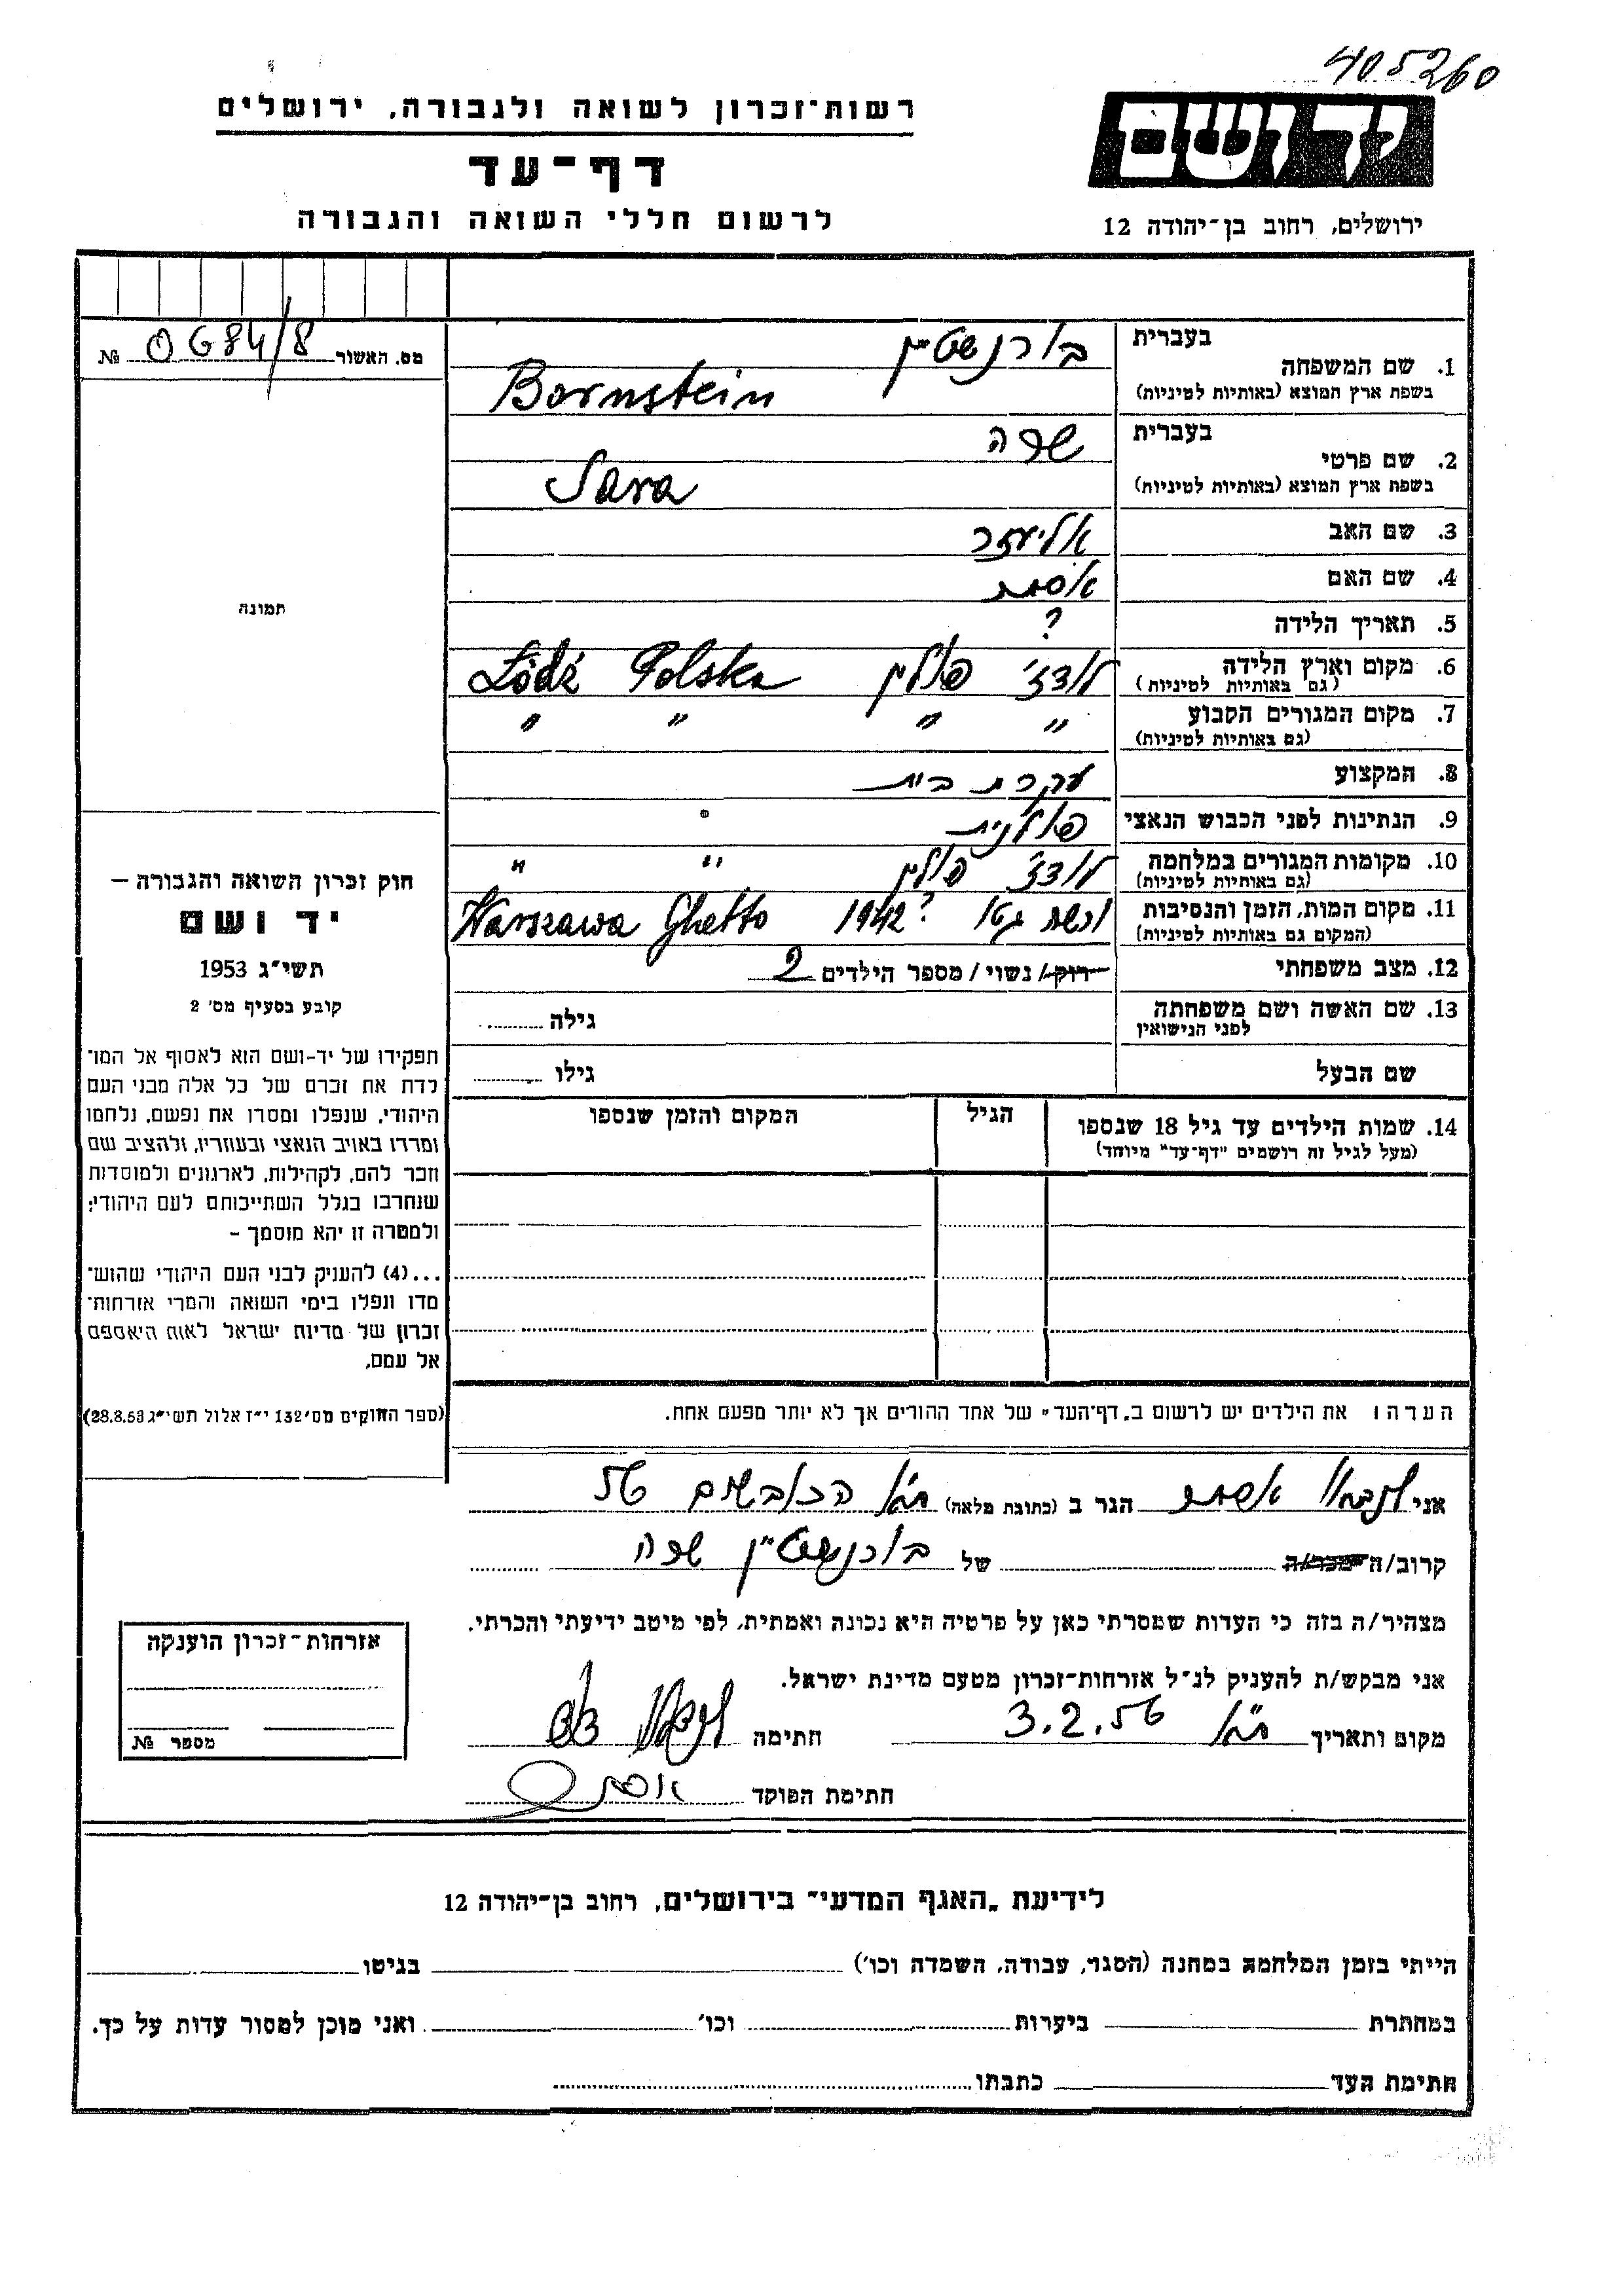 405260
יד ושם
ירושלים, רחוב בן־יהודה 12
רשות־זכרון לשואה ולגבורה, ירושלים
דף־עד
לרשום חללי השואה והגבורה
מס. האשור 0684/8 №
תמונה
חוק זכרון השואה והגבורה —
יד ושם
תשי״ג 1953
קובע בסעיף מס׳ 2
תפקידו של יד-ושם הוא לאסוף אל המו־
לדת את זכרם של כל אלה מבני העם
היהודי, שנפלו ומסרו את נפשם, נלחמו
ומרדו באויב הנאצי ובעוזריו, ולהציב שם
וזכר להם, לקהילות, לארגונים ולמוסדות
שנחרבו בגלל השתייכותם לעם היהודי;
ולמטרה זו יהא מוסמך –
...(4) להעניק לבני העם היהודי שהוש־
מדו ונפלו בימי השואה והמרי אזרחות־
זכרון של מדינת ישראל לאות היאספם
אל עמם.
(ספר החוקים מס׳ 132 י״ז אלול תשי״ג 28.8.53)
בעברית בורנשטיין
1. שם המשפחה
בשפת ארץ המוצא (באותיות לטיניות) Bornstein
בעברית שרה
2. שם פרטי
בשפת ארץ המוצא (באותיות לטיניות) Sara
3. שם האב אליעזר
4. שם האם אסתר
5. תאריך הלידה ?
6. מקום וארץ הלידה לודז׳ פולין Łódź Polska
(גם באותיות לטיניות)
7. מקום המגורים הקבוע " " " "
(גם באותיות לטיניות)
8. המקצוע עקרת בית
9. הנתינות לפני הכבוש הנאצי פולנית
10. מקומות המגורים במלחמה לודז׳ פולין " "
(גם באותיות לטיניות)
11. מקום המות, הזמן והנסיבות ורשה גטו 1942? Warszawa Ghetto
(המקום גם באותיות לטיניות)
12. מצב משפחתי רווק/ נשוי/ מספר הילדים 2
13. שם האשה ושם משפחתה גילה
לפני הנישואין
שם הבעל גילו
14. שמות הילדים עד גיל 18 שנספו הגיל המקום והזמן שנספו
(מעל לגיל זה רושמים "דף־עד" מיוחד)
הערה: את הילדים יש לרשום ב„דף־העד" של אחד ההורים אך לא יותר מפעם אחת.
אני אסתר הגר ב (כתובת מלאה) ת״א הכובשים 56
קרוב/ה מכר/ה של בורנשטיין שרה
מצהיר/ה בזה כי העדות שמסרתי כאן על פרטיה היא נכונה ואמתית, לפי מיטב ידיעתי והכרתי.
אני מבקש/ת להעניק לנ״ל אזרחות־זכרון מטעם מדינת ישראל.
מקום ותאריך ת״א 3.2.56 חתימה
חתימת הפוקד
אזרחות־זכרון הוענקה
מספר №
לידיעת „האגף המדעי" בירושלים, רחוב בן־יהודה 12
הייתי בזמן המלחמה במחנה (הסגר, עבודה, השמדה וכו׳) בגיטו
במחתרת ביערות וכו׳ ואני מוכן למסור עדות על כך.
חתימת העד כתבתו